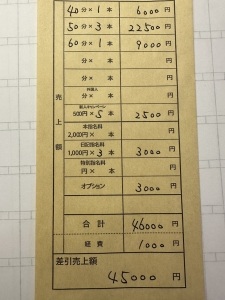 40分× 1 本 6000 円
50分× 3 本 22500 円
60分× 1 本 9000 円
分× 本 円
分× 本 円
外国人
分× 本 円
新人キャンペーン
500円× 5 本 2500 円
本指名料
2,000円× 本 円
日記指名料
1,000円× 3 本 3000 円
特別指名料
円× 本 円
オプション 3000 円
売上額
合計 46000 円
経費 1000 円
差引売上額
45000 円